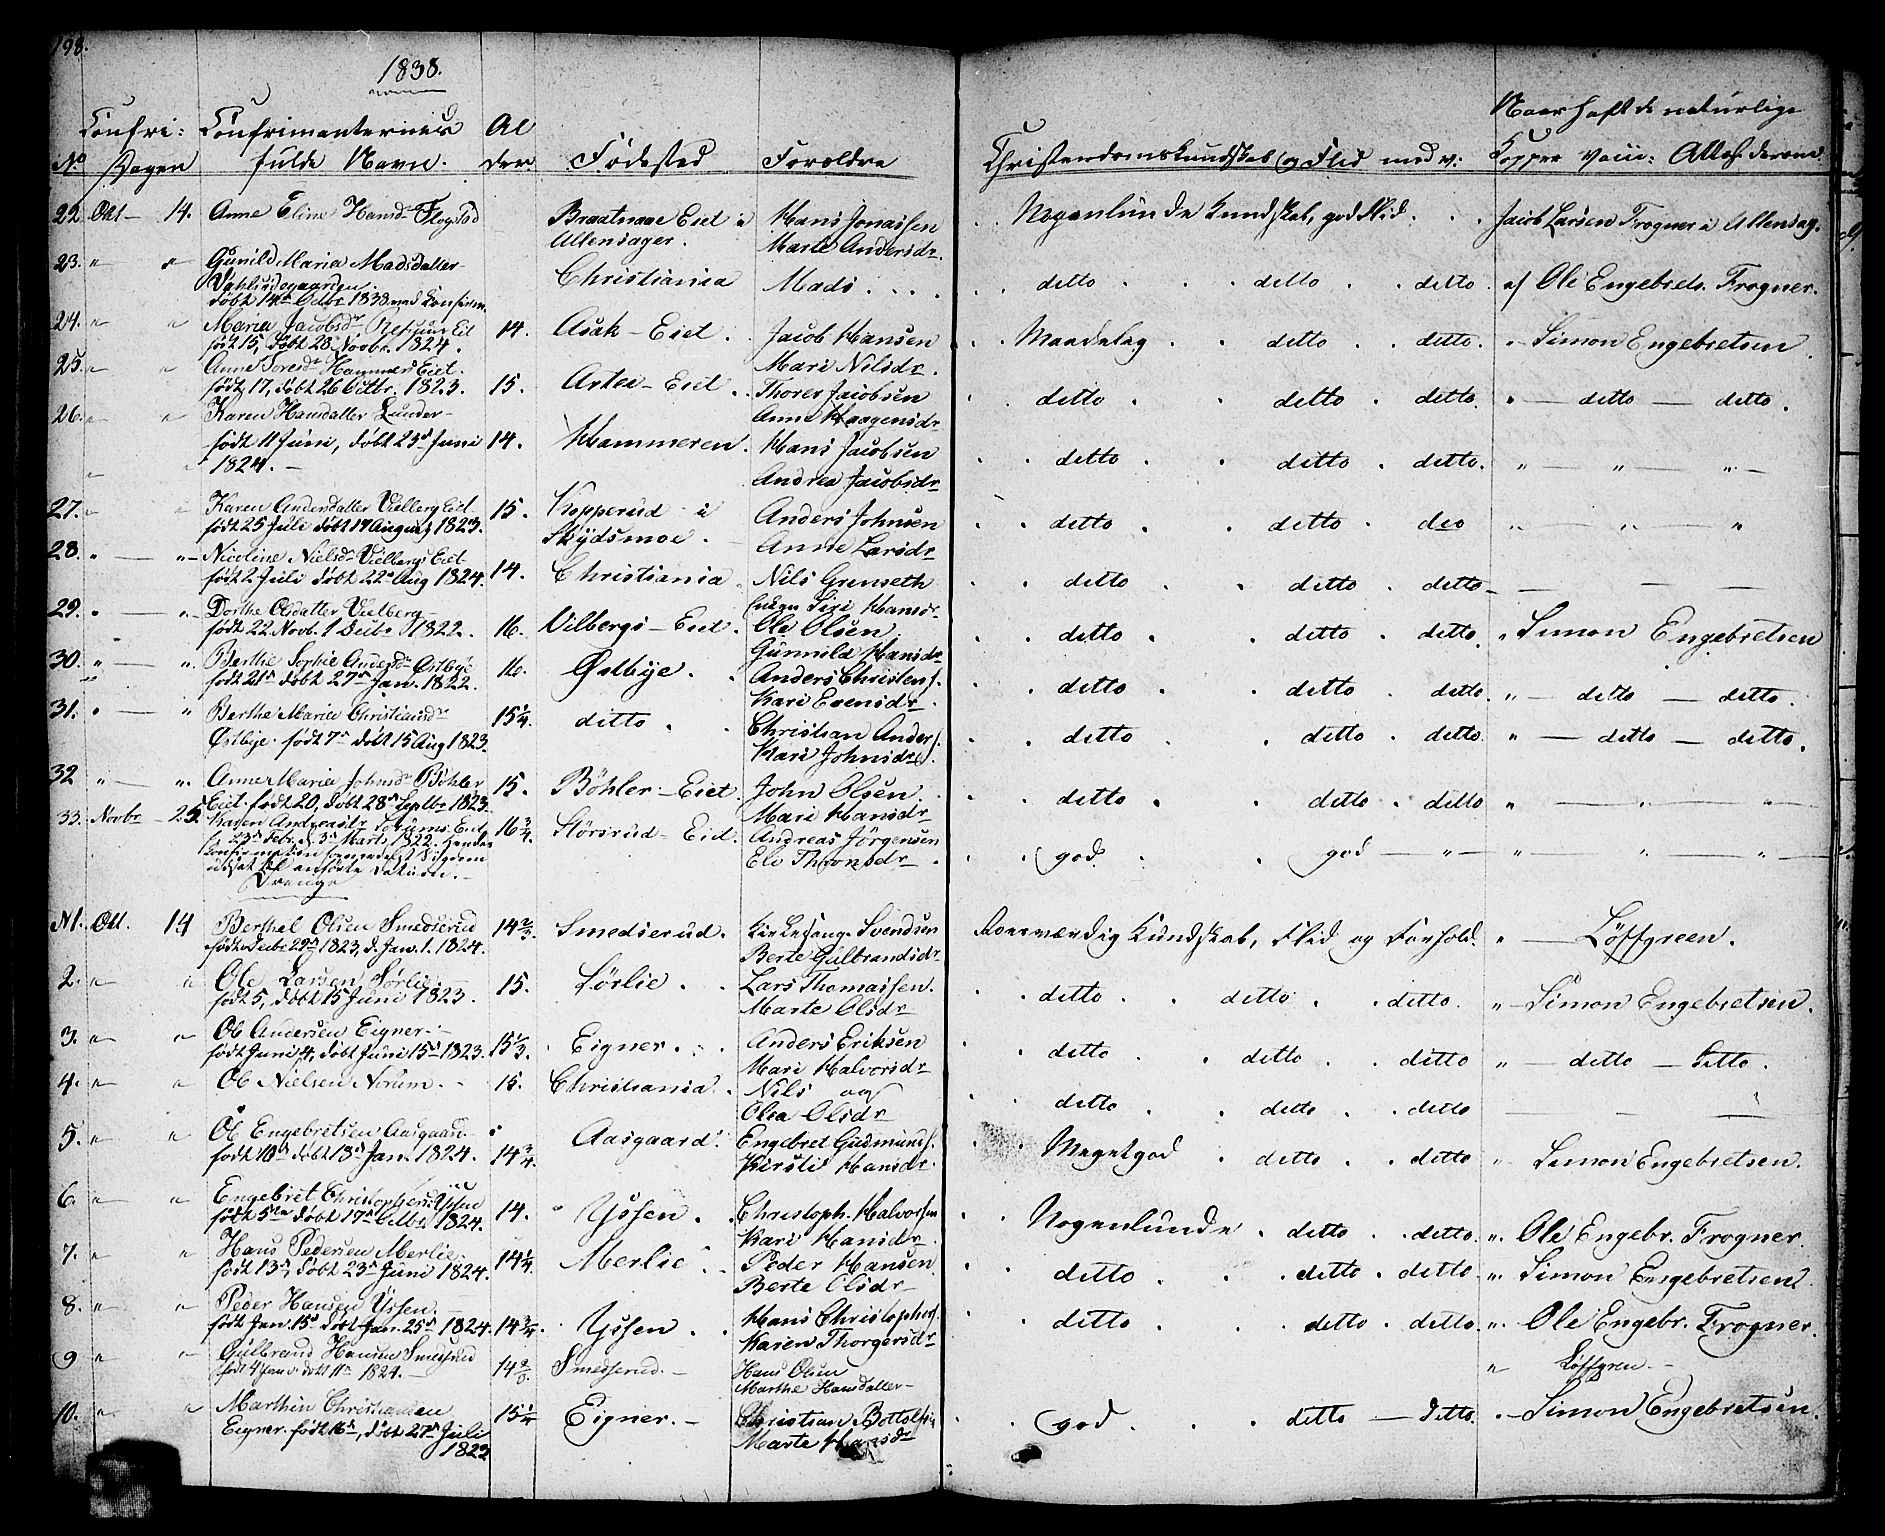 198.
1838.
No Confri: Dagen Confrimanternes fulde Navn. Alder. Fødested Forældre Christendomskundskab og Flid med v: Naar haft de naturlige Kopper Vacci: Attest derom
22. Okt — 14. Anne Eline Hansdr Flogstad Ullensager. Hans Jonassen Nogenlunde Kundskab, god Flid. Jacob Larsen Frogner i Ullensag.
Marte Andersdr.
23. " " Gunild Maria Madsdatter Christiania Mads . . . . ditto ditto ditto. af Ole Engebrets. Frogner.
døbt 14de Octbr 1838 ved Confirm.
24. " " Maria Jacobsdr Refsum Eit 14. Asak — Eiet. Jacob Hansen Maadelag ditto ditto. " Simon Engebretsen.
født 15, døbt 28 Novbr. 1824. Mari Nilsdr.
25. " " Anne Toresdr Hammer Eiet. 15. Arteе — Eiet. Thorer Jacobsen ditto ditto ditto. " — ditto — ditto.
født 17, døbt 26 Octbr. 1823. Anne Haagensdr
26. " " Karen Hansdatter Lunder — 14. Hammeren. Hans Jacobsen ditto ditto. ditto. " — " — "
født 11 Juni, døbt 25d Juni 1824. — Andrea Jacobsdr
27. " " Karen Andersdatter Vielberg Eiet 15. Kopperud i Skydsmoe. Anders Johnsen ditto ditto. deo " " "
født 25 Juli døbt 17 August 1823. Anne Larsdr
28. " " Nicoline Nielsdr Vielbergs Eiet 14. Christiania Nils Grenseth ditto ditto. ditto — — —
født 2 Juli døbt 22d Aug 1824. Siri Hansdr
29. " " Dorthe Olsdatter Vielberg — 16. Vilbergs — Eiet. Ole Olsen ditto ditto. ditto. " Simon Engebretsen
født 22 Novb. 1 Decbr 1822. Gunnild Hansdr
30. " " Berthe Sophie Andersdr Østbye 16. Østbye. Anders Christens. ditto ditto ditto. " — ditto — ditto.
født 21d døbt 27d Jan. 1822. Kari Evensdr
31. " " Berthe Maria Christiansdr 15¼. ditto. Christian Anders. ditto ditto. ditto. " — ditto — ditto.
Østbye. født 7d døbt 15 Aug 1823. Kari Johnsdr.
32 " " Anne Maria Johnsdr Bøhler 15. Bøhler — Eiet. John Olsen ditto ditto. ditto " — " — "
Eiet. født 20, døbt 28d Septbr 1823. Mari Hansdr.
33. Novbr — 25. Karen Andreasdr Sørums Eiet 16¾. Størsrud — Eid. Andreas Jørgensen god. god — " — " " "
f. 23d Febr. d. 3d Marts 1822. Hendes Eli Thronsdr
Confirmation formedelst Sygdom
udsat til anførte Datum. —
Drenge
N1. Okt. 14 Berthel Olsen Smedserud 14⅔. Smedserud. Kirkesang. Svendsen Roesværdig Kundskab, Flid og Forhold. " — Løffgreen.
født Decbr 29d 1823, d. Jan. 1. 1824. Berte Gulbrandsdr
2. " " Ole Larsen Sørlie — 15. Sørlie. Lars Thomassen. ditto ditto ditto. " — Simon Engebretsen.
født 5, døbt 15 Juni 1823. Marte Olsdr
3. " " Ole Andersen Eigner. 15⅓. Eigner. Anders Eriksen ditto ditto ditto " — ditto — ditto.
født Juni 4, døbt Juni 15d 1823. Mari Halvorsdr
4. " " Ole Nielsen Norum. — 15. Christiania. Nils og ditto ditto ditto — — —
Olea Olsdr
5. " " Ole Engebretsen Aasgaard. 14¾. Aasgaard. Engebret Gudmunds. Megetgod ditto ditto " Simon Engebretsen.
født 10d døbt 18d Jan. 1824. Kirsti Hansdr.
6. " " Engebret Christophersen Yssen 14. Yssen. Christoph. Halvorsen Nogenlunde ditto ditto. " Ole Engebr. Frogner.
født 5te døbt 17d Octbr 1824. Kari Hansdr.
7. " " Hans Pedersen Merlie. 14¼. Merlie. Peder Hansen ditto ditto ditto " Simon Engebretsen.
født 13d, døbt 23d Juni 1824. Berte Olsdr
8. " " Peder Hansen Yssen. 14¾. Yssen. Hans Christophers. ditto ditto ditto. " Ole Engebr. Frogner.
født Jan. 15d døbt Jan. 25d 1824. Karen Thorgersdr
9 " " Gulbrand Hansen Smedsrud 14 Smedserud. — Hans Olsen " Løffgren. —
født 4 Janu. døbt 11d 1824. — Marthe Hansdatter —
10. " " Marthin Christiansen 15¼ Eigner. — Christian god. ditto — ditto. " — Simon Engebretsen.
Eigner. født 16d, døbt 27d Juli 1823 Marte Hansdr